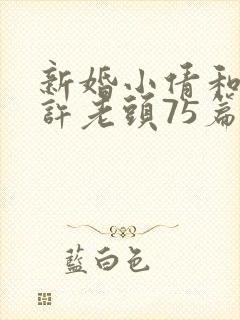 新婚小倩和
許老頭75篇
藍白色